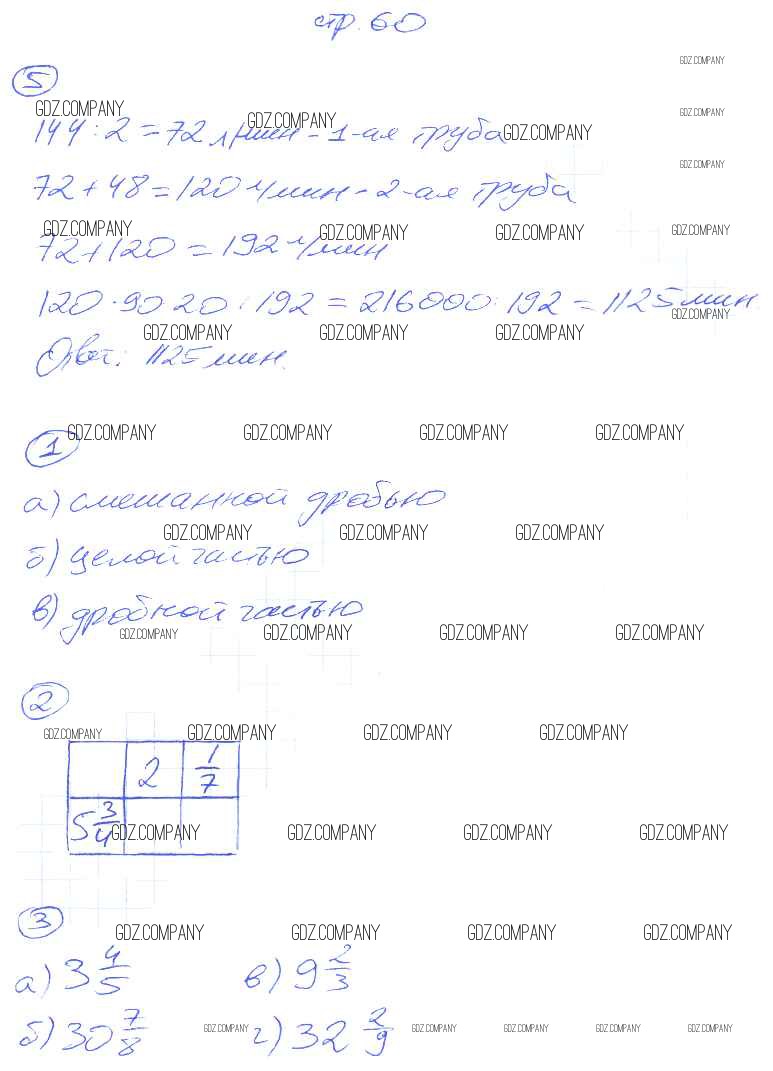 стр. 60
GDZ.COMPANY
5
GDZ.COMPANY GDZ.COMPANY GDZ.COMPANY GDZ.COMPANY
144 : 2 = 72 л/мин - 1-ая труба
GDZ.COMPANY
72 + 48 = 120 л/мин - 2-ая труба
GDZ.COMPANY GDZ.COMPANY GDZ.COMPANY GDZ.COMPANY
72 + 120 = 192 л/мин
120 · 90 · 20 : 192 = 216000 : 192 = 1125 мин.
GDZ.COMPANY
GDZ.COMPANY GDZ.COMPANY GDZ.COMPANY
Ответ: 1125 мин.
1
GDZ.COMPANY GDZ.COMPANY GDZ.COMPANY GDZ.COMPANY
а) смешанной дробью
GDZ.COMPANY GDZ.COMPANY GDZ.COMPANY
б) целой частью
в) дробной частью
GDZ.COMPANY GDZ.COMPANY GDZ.COMPANY GDZ.COMPANY
2
GDZ.COMPANY GDZ.COMPANY GDZ.COMPANY GDZ.COMPANY
2 1/7
5 3/4
GDZ.COMPANY GDZ.COMPANY GDZ.COMPANY GDZ.COMPANY
3
GDZ.COMPANY GDZ.COMPANY GDZ.COMPANY GDZ.COMPANY
а) 3 4/5 в) 9 2/3
б) 30 7/8 г) 32 2/9
GDZ.COMPANY GDZ.COMPANY GDZ.COMPANY GDZ.COMPANY GDZ.COMPANY